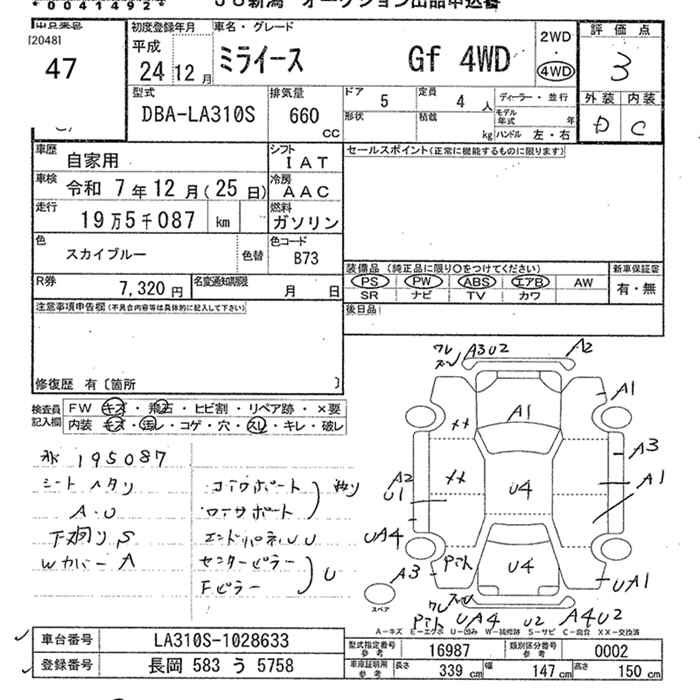 00414924
JU新潟 オークション出品申込書
[2048]
47
初度登録年月
平成
24年12月
車名・グレード
ミライース Gf 4WD
2WD
・
4WD
評価点
3
外装 内装
D C
型式
DBA-LA310S
排気量
660
cc
ドア
5
定員
4人
ディーラー・並行
形状
積載
kg
モデル年式 年
ハンドル 左・右
車歴
自家用
シフト
IAT
セールスポイント(正常に機能するものに限ります)
車検
令和 7年12月(25日)
冷房
AAC
走行
19万5千087 km
燃料
ガソリン
色
スカイブルー
色替
色コード
B73
装備品(純正品に限り○をつけてください)
新車保証書
PS PW ABS エアB AW
SR ナビ TV カワ
有・無
R券
7,320円
名変通知期限
月 日
後日品
注意事項申告欄(不具合内容等は具体的に記入して下さい)
修復歴 有〔箇所 〕
検査員記入欄
FW キズ・飛石・ヒビ割・リペア跡・×要
内装 キズ・汚レ・コゲ・穴・スレ・キレ・破レ
195087
シート ヘタリ
A・U
下廻り S
Wカバー A
コアサポート
ロアサポート
エンドパネル U
センターピラー
Fピラー
U
ワレ
A3U2
A2
A1
A1
A3
A1
A2
U1
U4
UA4
A3
U4
UA1
ワレ
UA4
U2
A4U2
スペア
A-キズ E-エクボ U-凹み W-補修跡 S-サビ C-腐食 XX-交換済
車台番号
LA310S-1028633
登録番号
長岡 583 う 5758
型式指定番号
参考
16987
類別区分番号
参考
0002
車庫証明用
参考
長さ
339cm
幅
147cm
高さ
150cm